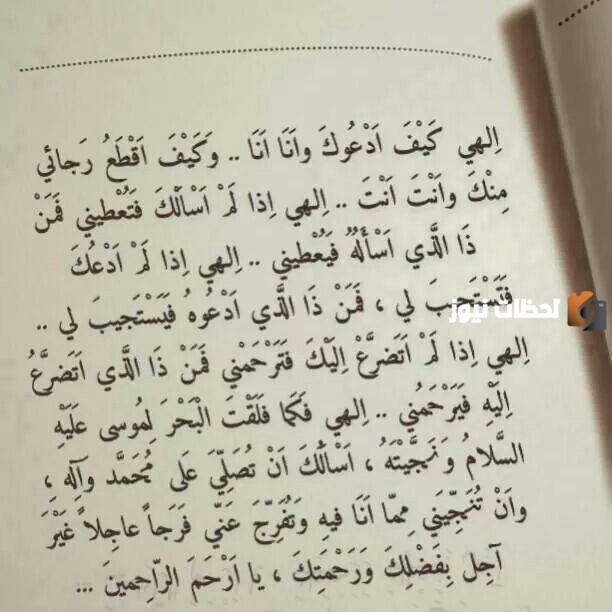 اِلهي كَيْفَ اَدْعُوكَ وَاَنَا اَنَا .. وَكَيْفَ اَقْطَعُ رَجائي
مِنْكَ وَاَنْتَ اَنْتَ .. اِلهي اِذا لَمْ اَسْاَلْكَ فَتُعْطيني فَمَنْ
ذَا الَّذي اَسْأَلُهُ فَيُعْطيني .. اِلهي اِذا لَمْ اَدْعُكَ
فَتَسْتَجيبَ لي ، فَمَنْ ذَا الَّذي اَدْعُوهُ فَيَسْتَجيبَ لي ..
لحظات نيوز
اِلهي اِذا لَمْ اَتَضرَّعْ اِلَيْكَ فَتَرْحَمْني فَمَنْ ذَا الَّذي اَتَضرَّعُ
اِلَيْهِ فَيَرْحَمُني .. اِلهي فَكَما فَلَقْتَ الْبَحْرَ لِمُوسى عَلَيْهِ
السَّلامُ وَنَجَّيْتَهُ ، اَسْأَلُكَ اَنْ تُصَلِّيَ عَلى مُحَمَّد وَآلِهِ ،
وَاَنْ تُنَجِّيَني مِمّا اَنَا فيهِ وَتُفَرِّجَ عَنّي فَرَجاً عاجِلاً غَيْرَ
آجِل بِفَضْلِكَ وَرَحْمَتِكَ ، يا اَرْحَمَ الرّاحِمينَ ...